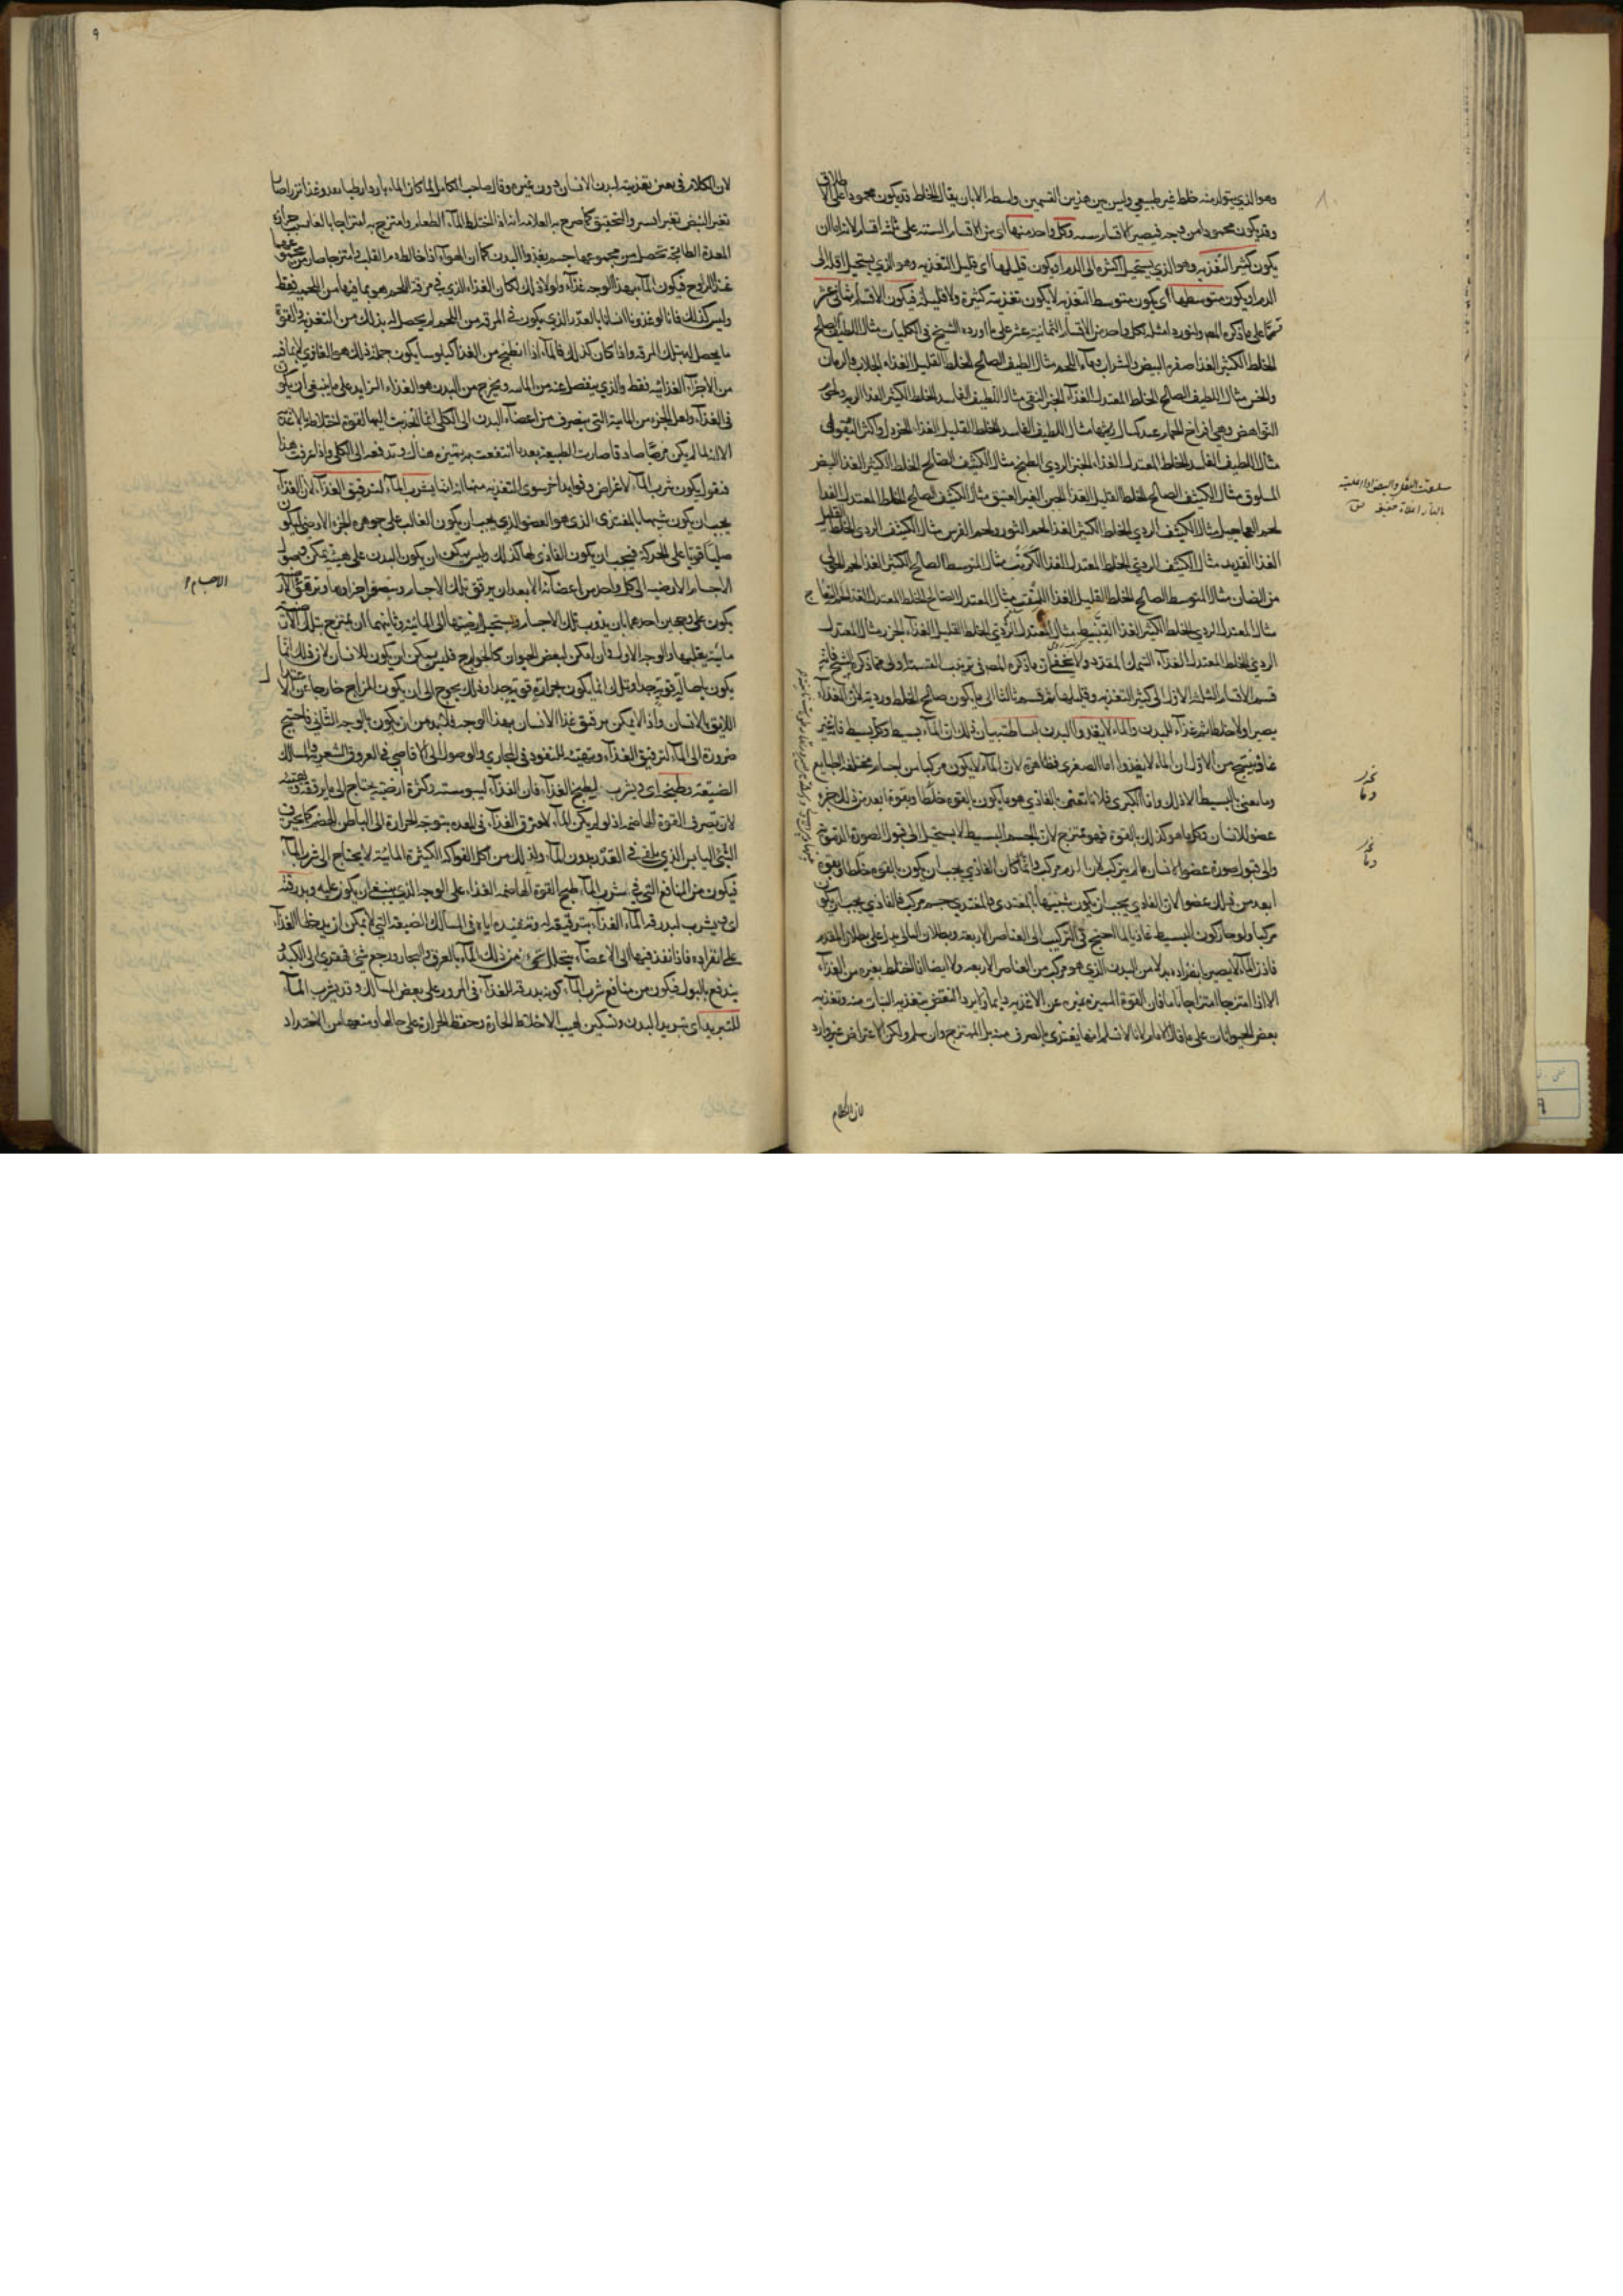 وهو الذي يتولد منه خلط غير طبيعي وليس بين هذين القسمين واسطة الا بان يقال الخلط قد يكون محمودا على الاطلاق
وقد يكون محمودا من وجه فيصير الاقسام ستة وكل واحد منها اي من الاقسام الستة على ثلثة اقسام لانه اما ان
يكون كثير التغذية وهو الذي يستحيل اكثره الى الدم او يكون قليلها اي قليل التغذية وهو الذي يستحيل اقله الى
الدم او يكون متوسطها اي يكون متوسط التغذية لا يكون تغذيته كثيرة ولا قليلة فيكون الاقسام ثماني عشر
قسما على ما ذكره المص ولنورد امثلة لكل واحد من الاقسام الثمانية عشر على ما اورده الشيخ في الكليات مثال اللطيف الصالح
الخلط الكثير الغذا صفرة البيض والشراب وماء اللحم مثال اللطيف الصالح الخلط القليل الغذاء الجلاب والرمان
والخس مثال اللطيف الصالح الخلط المعتدل الغذآء الخبز النقي مثال اللطيف الفاسد الخلط الكثير الغذا الرية ولحم
النواهض وهي افراخ الحمام عند كمال ريشها مثال اللطيف الفاسد الخلط القليل الغذاء الخردل واكثر البقول
مثال اللطيف الفاسد الخلط المعتدل الغذاء الخبز الردي الطبخ مثال الكثيف الصالح الخلط الكثير الغذا البيض
المسلوق مثال الكثيف الصالح الخلط القليل الغذا الجبن الغير العتيق مثال الكثيف الصالح الخلط المعتدل الغذا
لحم العجاجيل مثال الكثيف الردي الخلط الكثير الغذا لحم الثور ولحم الفرس مثال الكثيف الردي الخلط القليل
الغذا القديد مثال الكثيف الردي الخلط المعتدل الغذا الكرنب مثال المتوسط الصالح الكثير الغذا لحم الحولي
من الضان مثال المتوسط الصالح الخلط القليل الغذا مثال المعتدل الصالح الخلط المعتدل الغذا
مثال المعتدل الردي الخلط الكثير الغذا القنبيط مثال المعتدل الردي الخلط القليل الغذاء الجزر مثال المعتدل
الردي الخلط المعتدل الغذاء السمك المقدد ولا يخفى ان ما ذكره المص في ترتيب القسمة اولى مما ذكره الشيخ فانه
قسم الاقسام الثلثة الاول الى كثير التغذية وقليلها ثم قسم ثالثا الى ما يكون صالح الخلط ورديه لان الغذآء
يصير اولا خلطا ثم غذآء للبدن والماء لا يغذو البدن لبساطته بيان ذلك ان المآء بسيط وكل بسيط فانه غير
غاذ فينتج من الاول ان الماء لا يغذو اما الصغرى فظاهرة لان المآء لا يكون مركبا من اجسام مختلفة الطبايع
وما معنى البسيط الا ذلك واما الكبرى فلانا نعنى بالغاذي هو ما يكون بالقوة خلطا وبقوة ابعد من ذلك جزء
عضو للانسان وكل ما هو كذلك بالقوة فهو ممتزج لان الجسم البسيط لا يستحيل الى قبول الصورة الدموية
والى قبول صورة عضو الانسان ما لم يتركب لان الدم مركب وانما كان الغاذي يجب ان يكون بالقوة خلطا وبقوة
ابعد من ذلك عضوا لان الغاذي يجب ان يكون شبيها بالمغتذي والمغتذي جسم مركب فالغاذي يجب ان يكون
مركبا ولو جاز كون البسيط غاذيا لما احتيج في التركيب الى العناصر الاربعة وبطلان التالي يدل على بطلان المقدم
فاذن المآء لا يصير بانفراده بدلا من البدن الذي هو مركب من العناصر الاربعة ولا ايضا اذا اختلط بغيره من الغذآء
الا اذا امتزجا امتزاجا تاما فان القوة المميزة تميزه عن الاغذية دايما وايراد النقض بتغذية النبات منه وتغذية
بعض الحيوانات على ما قال الامام لانا لا نسلم انها يغتذي بالصرف منه بل الممتزج وان سلم ولكن الاعتراض غير وارد
لان الكلام
٩
لان الكلام في نفس تغذيته لبدن الانسان دون غيره وقال صاحب الكامل لما كان الماء باردا رطبا
تغير النبض تغير ايسر والتحقيق كما صرح به العلامة انه اذا اختلط المآء الطعام وامتزج به امتزاجا بالغا بسبب حرارة
المعدة الطابخة تحصل من مجموعهما جسم يغذو البدن كما ان الهوآء اذا خالط دم القلب وامتزجا صار من مجموعهما
غذآء للروح فيكون المآء بهذا الوجه غذآء ولولا ذلك لكان الغذاء الذي في مرقة اللحم هو بما فيها من اللحمية فقط
وليس كذلك فانا لو غذونا انسانا بالقدر الذي يكون في المرقة من اللحم لم يحصل له بذلك من التغذية والقوة
ما يحصل له بتلك المرقة واذا كان كذلك فالمآء اذا انطبخ من الغذآء كيلوسا يكون جملة ذلك هو الغاذي لا بما فيه
من الاجزآء الغذائية فقط والذي ينفصل عنه من المائية ويخرج من البدن هو الغذاء الزايد على ما ينبغي ان يكون
في الغذآء ولعل الجزء من المائية التي ينصرف من اعضاء البدن الى الكلى انما انجذبت اليها لقوة اختلاطها بالاغذية
فنقول يكون شرب المآء لاغراض وفوايد اخر سوى التغذية منها انه انما يشرب المآء لترقيق الغذآء لان الغذآء
يجب ان يكون شبيها بالمغتذي الذي هو العضو الذي يجب ان يكون الغالب على جوهره الجزء الارضي ليكون
صلبا قويا على الحركة فيجب ان يكون الغاذي لها كذلك وليس يمكن ان يكون البدن على هيئة يمكن وصول
الاجسام الارضية الى كل واحد من اعضائه الا بعد ان يرقق تلك الاجسام ويصغر اجزاوها وترقيق
الاجسام
يكون على وجهين احدهما بان يذوب تلك الاجسام ويستحيل ارضيتها الى المائية وثانيهما ان يمتزج بتلك الارضية
مائية يقلبها والوجه الاول وان امكن لبعض الحيوان كالجوارح فليس يمكن ان يكون للانسان لان ذلك انما
يكون باحالة قوية جدا وتلك انما يكون بحرارة قوية جدا وذلك يحوج الى ان يكون المزاج خارجا عن الاعتدال
اللايق بالانسان واذا لا يمكن ترقيق غذا الانسان بهذا الوجه فلا بد من ان يكون بالوجه الثاني فاحتيج
ضرورة الى المآء لترقيق الغذآء وتهيئه للنفوذ في المجاري والوصول الى الاقاصي في العروق الشعرية والمسالك
الضيقة وطبخه اي ويشرب ليطبخ الغذآء فان الغذآء ليبوسته وكثرة ارضيته يحتاج الى ما يرققه
لان تصرف القوة الهاضمة اذ لو لم يكن المآء لاحترق الغذآء في المعدة بتوجه الحرارة الى الباطن للهضم كما يحترق
الشيء اليابس الذي يلقى في القدر بدون المآء ولذلك من اكل الفواكه الكثيرة المائية لا يحتاج الى شرب المآء
فيكون من المنافع التي في شرب المآء طبخ القوة الهاضمة الغذاء على الوجه الذي ينبغي ان يكون عليه وبدرقته
اي ويشرب لبدرقة المآء الغذآء بترقيقه له وتنفيذه اياه في المسالك الضيقة التي لا يمكن ان يدخلها الغذآء
على انفراده فاذا نفذ فيها الى الاعضآء يتحلل شيء من ذلك المآء بالعرق والبخار ورجع شيء قهقرى الى الكبد
يندفع بالبول فيكون من منافع شرب المآء كونه بدرقة للغذآء في المرور على بعض المسالك وقد يشرب المآء
للتبريد اي تبريد البدن وتسكين لهيب الاخلاط الحارة وحفظ الحرارة على حالها ومنعها من الاشتداد